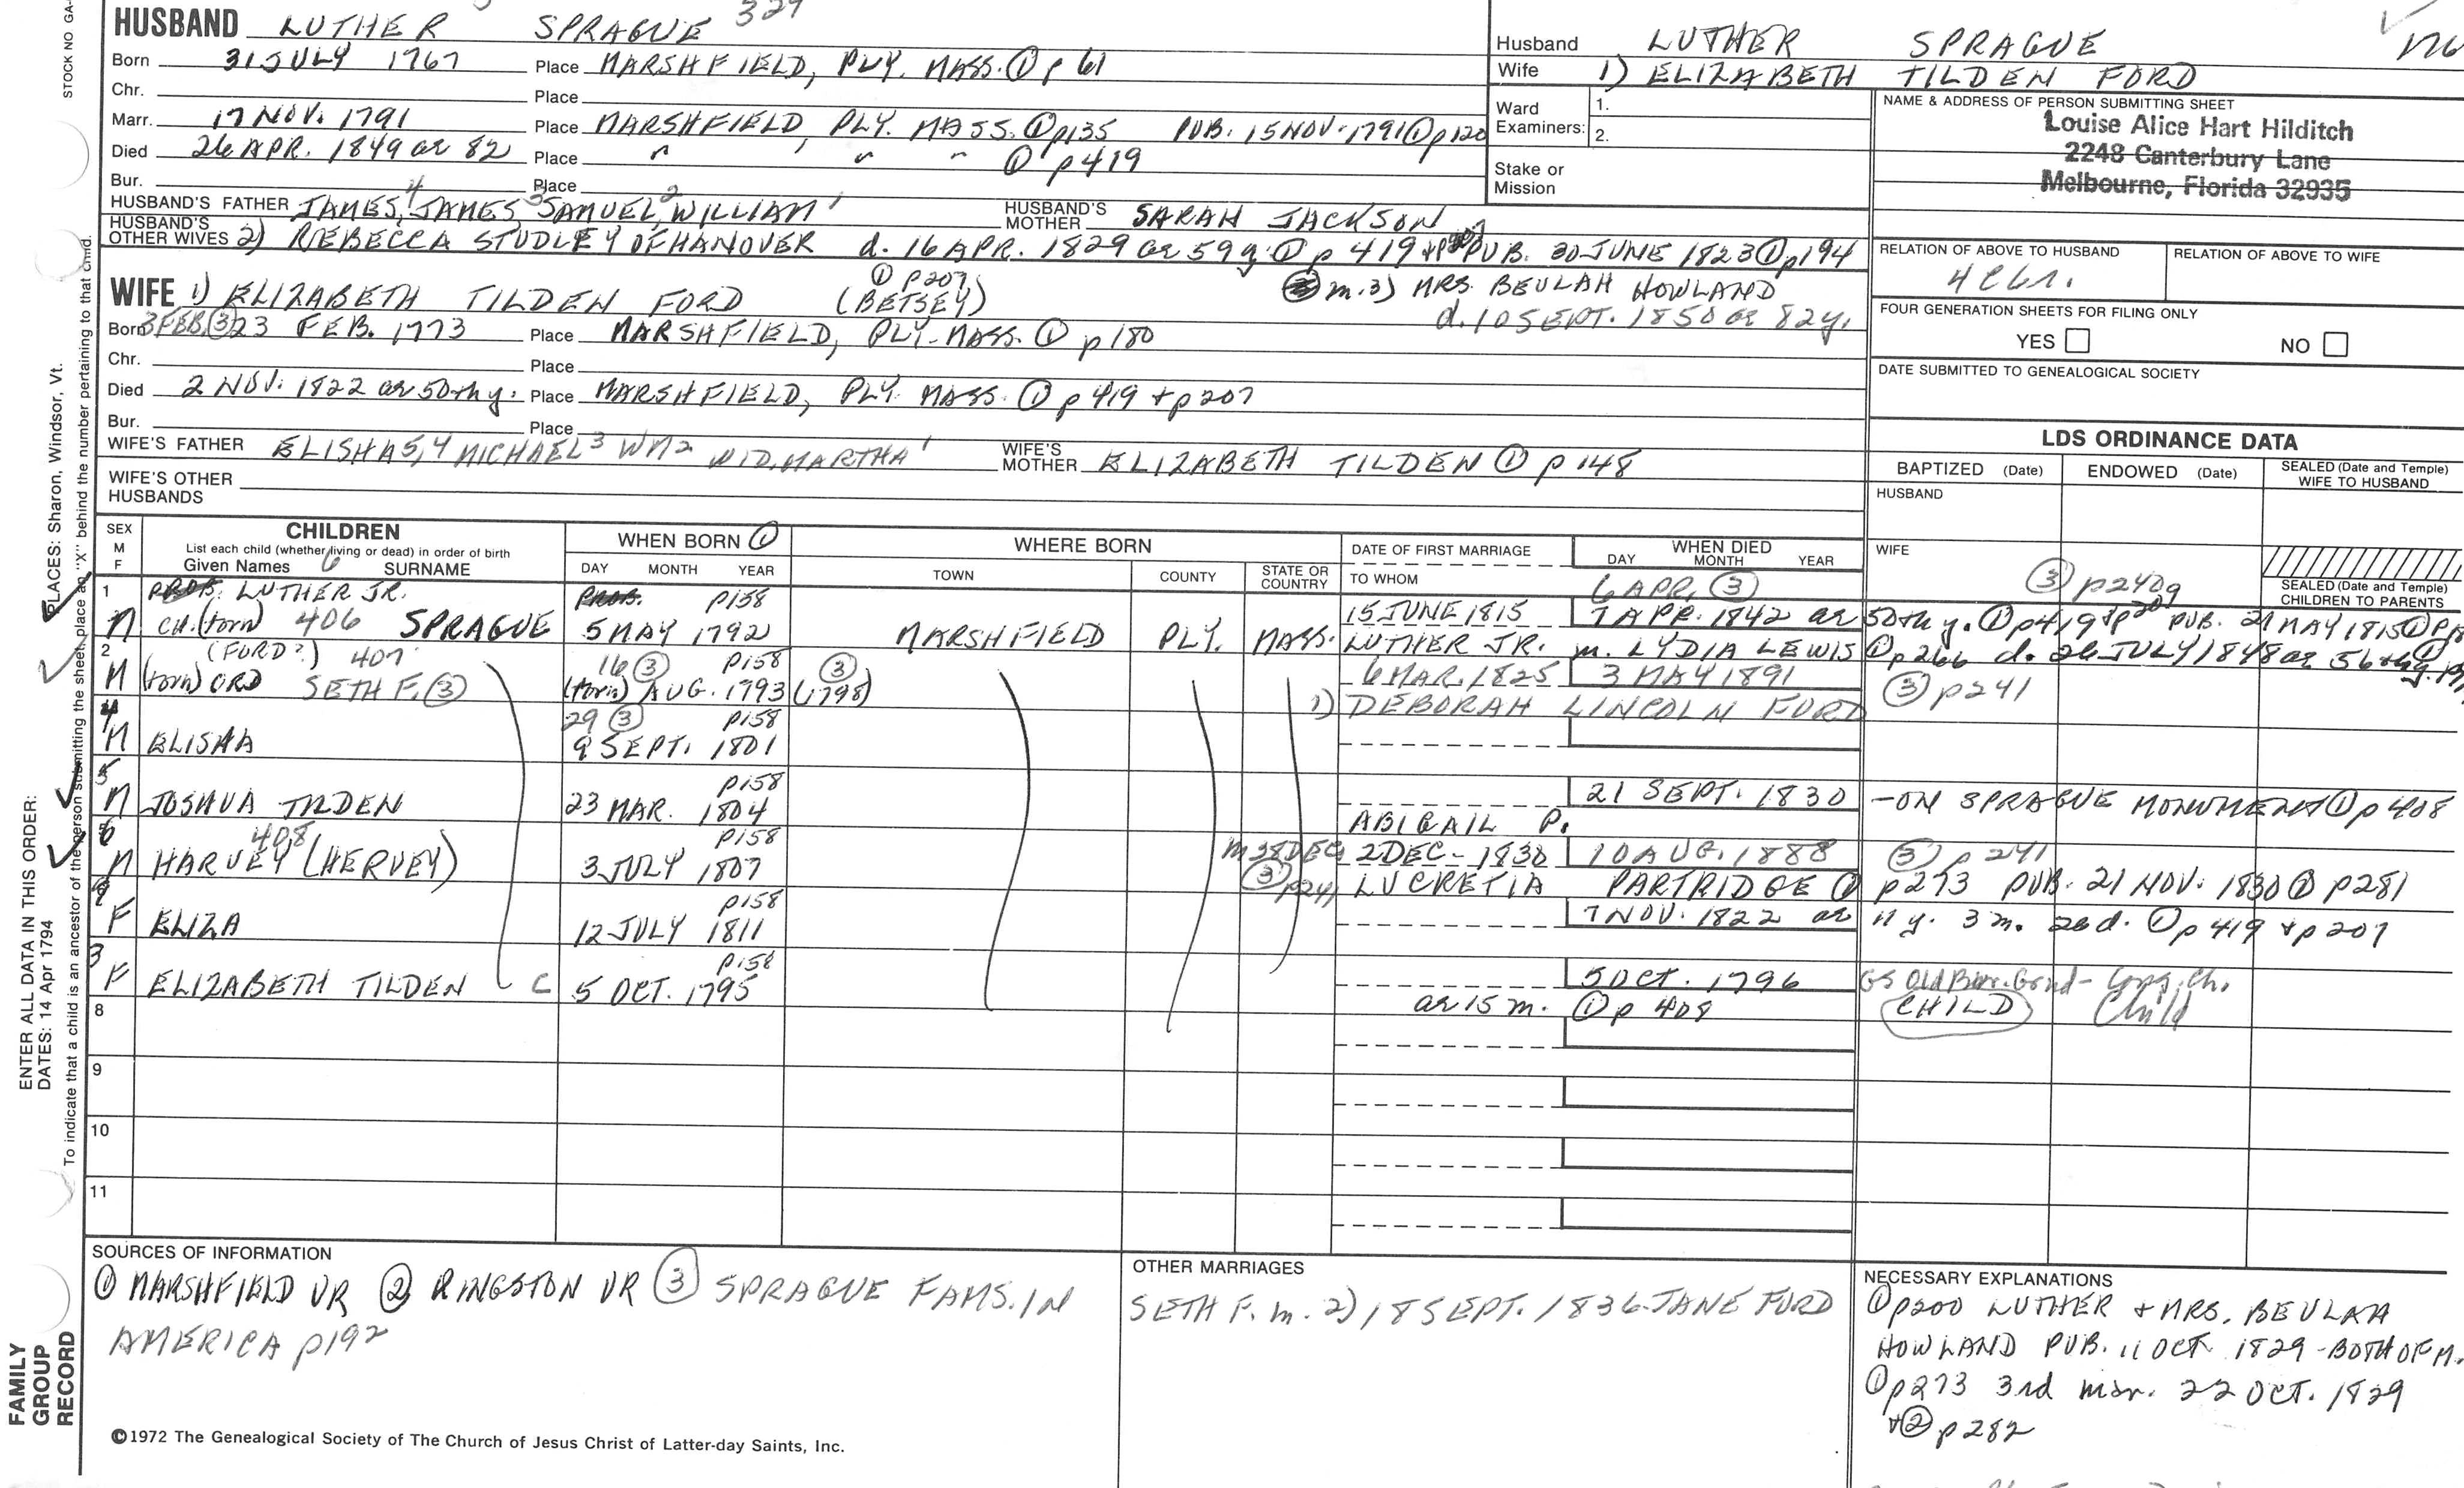 HUSBAND LUTHER SPRAGUE 329
Born 31 JULY 1767 Place MARSHFIELD, PLY. MASS. ① p 61
Chr. Place
Marr. 17 NOV. 1791 Place MARSHFIELD, PLY. MASS. ① p135 PUB. 15 NOV. 1791 ① p120
Died 26 APR. 1849 ae 82 Place " " " ① p419
Bur. Place
HUSBAND'S FATHER JAMES,4 JAMES3 SAMUEL,2 WILLIAM1 HUSBAND'S MOTHER SARAH JACKSON
HUSBAND'S OTHER WIVES 2) REBECCA STUDLEY OF HANOVER d. 16 APR. 1829 ae 59 y. ① p 419 + p207 PUB. 30 JUNE 1823 ① p194
① p207
WIFE 1) ELIZABETH TILDEN FORD (BETSEY) m. 3) MRS. BEULAH HOWLAND
d. 10 SEPT. 1850 ae 82 y.
Born 3 FEB. ③ 23 FEB. 1773 Place MARSHFIELD, PLY. MASS. ① p 180
Chr. Place
Died 2 NOV. 1822 ae 50th y. Place MARSHFIELD, PLY. MASS. ① p 419 + p207
Bur. Place
WIFE'S FATHER ELISHA5,4 MICHAEL3 WM2 WID. MARTHA1 WIFE'S MOTHER ELIZABETH TILDEN ① p 148
WIFE'S OTHER HUSBANDS
Husband LUTHER SPRAGUE
Wife 1) ELIZABETH TILDEN FORD
Ward Examiners: 1.
2.
Stake or Mission
NAME & ADDRESS OF PERSON SUBMITTING SHEET
Louise Alice Hart Hilditch
2248 Canterbury Lane
Melbourne, Florida 32935
RELATION OF ABOVE TO HUSBAND RELATION OF ABOVE TO WIFE
FOUR GENERATION SHEETS FOR FILING ONLY
YES NO
DATE SUBMITTED TO GENEALOGICAL SOCIETY
LDS ORDINANCE DATA
BAPTIZED (Date) ENDOWED (Date) SEALED (Date and Temple) WIFE TO HUSBAND
HUSBAND
WIFE
SEALED (Date and Temple) CHILDREN TO PARENTS
SEX M F CHILDREN
List each child (whether living or dead) in order of birth
Given Names SURNAME
WHEN BORN ①
DAY MONTH YEAR
WHERE BORN
TOWN COUNTY STATE OR COUNTRY
DATE OF FIRST MARRIAGE
TO WHOM
WHEN DIED
DAY MONTH YEAR
1 LUTHER JR. p158 6 APR. ③ ③ p240
M CH. (torn) 406 SPRAGUE 5 MAY 1792 MARSHFIELD PLY. MASS. 15 JUNE 1815 7 APR. 1842 ae 50th y. ① p419 + p207 PUB. 21 MAY 1815 ①
LUTHER JR. m. LYDIA LEWIS ① p266 d. 26 JULY 1848 ae 56th y.
2 (FORD?) 407 16 ③ p158 ③
M (torn) ORD SETH F. ③ (torn) AUG. 1793 (1798) 6 MAR. 1825 3 MAY 1891 ③ p241
1) DEBORAH LINCOLN FORD
4 29 ③ p158
M ELISHA 9 SEPT. 1801
5 p158
M JOSHUA TILDEN 23 MAR. 1804 21 SEPT. 1830 - ON SPRAGUE MONUMENT ① p 408
ABIGAIL P.
6 408 p158
M HARVEY (HERVEY) 3 JULY 1807 m 28 DEC ③ p241 2 DEC. 1830 10 AUG. 1888 ③ p 241
LUCRETIA PARTRIDGE ① p273 PUB. 21 NOV. 1830 ② p281
p158
F ELIZA 12 JULY 1811 7 NOV. 1822 ae 11 y. 3 m. 26 d. ① p 419 + p 207
3 p158
F ELIZABETH TILDEN C 5 OCT. 1795 5 OCT. 1796 GS Old Bur. Grnd - Cong. Ch.
ae 15 m. ① p 408 CHILD Child
8
9
10
11
SOURCES OF INFORMATION
① MARSHFIELD VR ② KINGSTON VR ③ SPRAGUE FAMS. IN
AMERICA p192
OTHER MARRIAGES
SETH F. m. 2) 18 SEPT. 1836 JANE FORD
NECESSARY EXPLANATIONS
① p200 LUTHER + MRS. BEULAH
HOWLAND PUB. 11 OCT. 1829 - BOTH OF M.
① p273 3rd mar. 22 OCT. 1829
+ ② p282
©1972 The Genealogical Society of The Church of Jesus Christ of Latter-day Saints, Inc.
STOCK NO GA-
PLACES: Sharon, Windsor, Vt.
ENTER ALL DATA IN THIS ORDER:
DATES: 14 Apr 1794
To indicate that a child is an ancestor of the person submitting the sheet, place an "X" behind the number pertaining to that child.
FAMILY
GROUP
RECORD